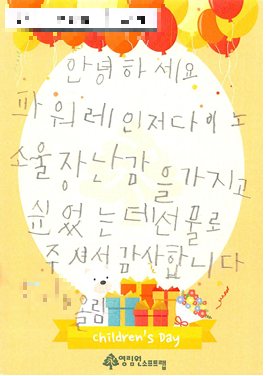 안녕하세요
파워레인저다이노
소울장난감을가지고
싶었는데선물로
주셔서감사합니다
올림
children's Day
영림원소프트랩